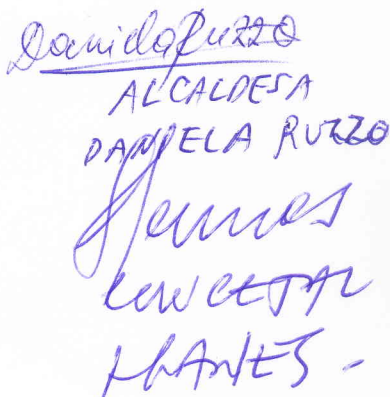 Daniela Ruzzo
ALCALDESA
DANIELA RUZZO
CONCEJAL